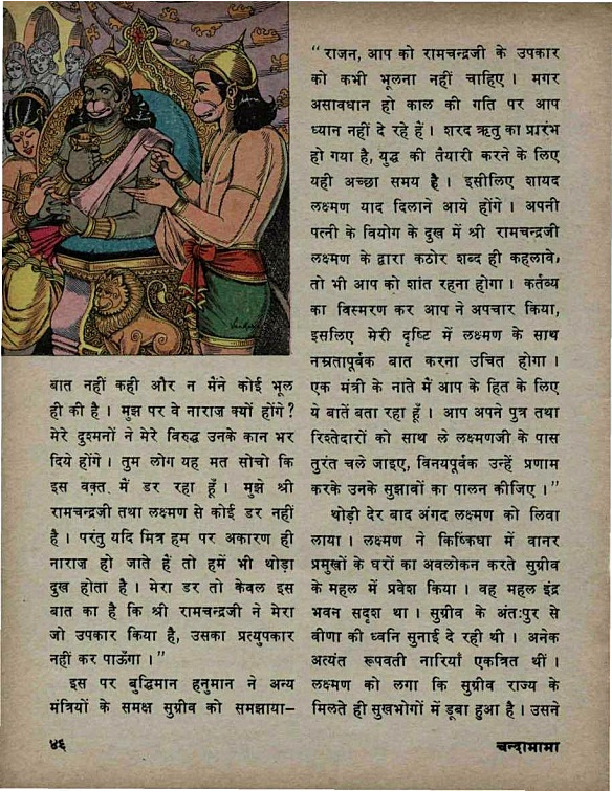 बात नहीं कही और न मैंने कोई भूल
ही की है । मुझ पर वे नाराज़ क्यों होंगे ?
मेरे दुश्मनों ने मेरे विरुद्ध उनके कान भर
दिये होंगे । तुम लोग यह मत सोचो कि
इस वक्त में डर रहा हूँ । मुझे श्री
रामचन्द्रजी तथा लक्ष्मण से कोई डर नहीं
है । परंतु यदि मित्र हम पर अकारण ही
नाराज हो जाते हैं तो हमें भी थोड़ा
दुख होता है । मेरा डर तो केवल इस
बात का है कि श्री रामचन्द्रजी ने मेरा
जो उपकार किया है, उसका प्रत्युपकार
नहीं कर पाऊँगा ।”
इस पर बुद्धिमान हनुमान ने अन्य
मंत्रियों के समक्ष सुग्रीव को समझाया–
“राजन, आप को रामचन्द्रजी के उपकार
को कभी भूलना नहीं चाहिए । मगर
असावधान हो काल की गति पर आप
ध्यान नहीं दे रहे हैं । शरद ऋतु का प्रारंभ
हो गया है, युद्ध की तैयारी करने के लिए
यही अच्छा समय है । इसीलिए शायद
लक्ष्मण याद दिलाने आये होंगे । अपनी
पत्नी के वियोग के दुख में श्री रामचन्द्रजी
लक्ष्मण के द्वारा कठोर शब्द ही कहलावे,
तो भी आप को शांत रहना होगा । कर्तव्य
का विस्मरण कर आप ने अपचार किया,
इसलिए मेरी दृष्टि में लक्ष्मण के साथ
नम्रतापूर्वक बात करना उचित होगा ।
एक मंत्री के नाते में आप के हित के लिए
ये बातें बता रहा हूँ । आप अपने पुत्र तथा
रिश्तेदारों को साथ ले लक्ष्मणजी के पास
तुरंत चले जाइए, विनयपूर्वक उन्हें प्रणाम
करके उनके सुझावों का पालन कीजिए ।”
थोड़ी देर बाद अंगद लक्ष्मण को लिवा
लाया । लक्ष्मण ने किष्किधा में वानर
प्रमुखों के घरों का अवलोकन करते सुग्रीव
के महल में प्रवेश किया । वह महल इंद्र
भवन सदृश था । सुग्रीव के अंतःपुर से
वीणा की ध्वनि सुनाई दे रही थी । अनेक
अत्यंत रूपवती नारियाँ एकत्रित थीं ।
लक्ष्मण को लगा कि सुग्रीव राज्य के
मिलते ही सुखभोगों में डूबा हुआ है । उसने
४६
चन्दामामा